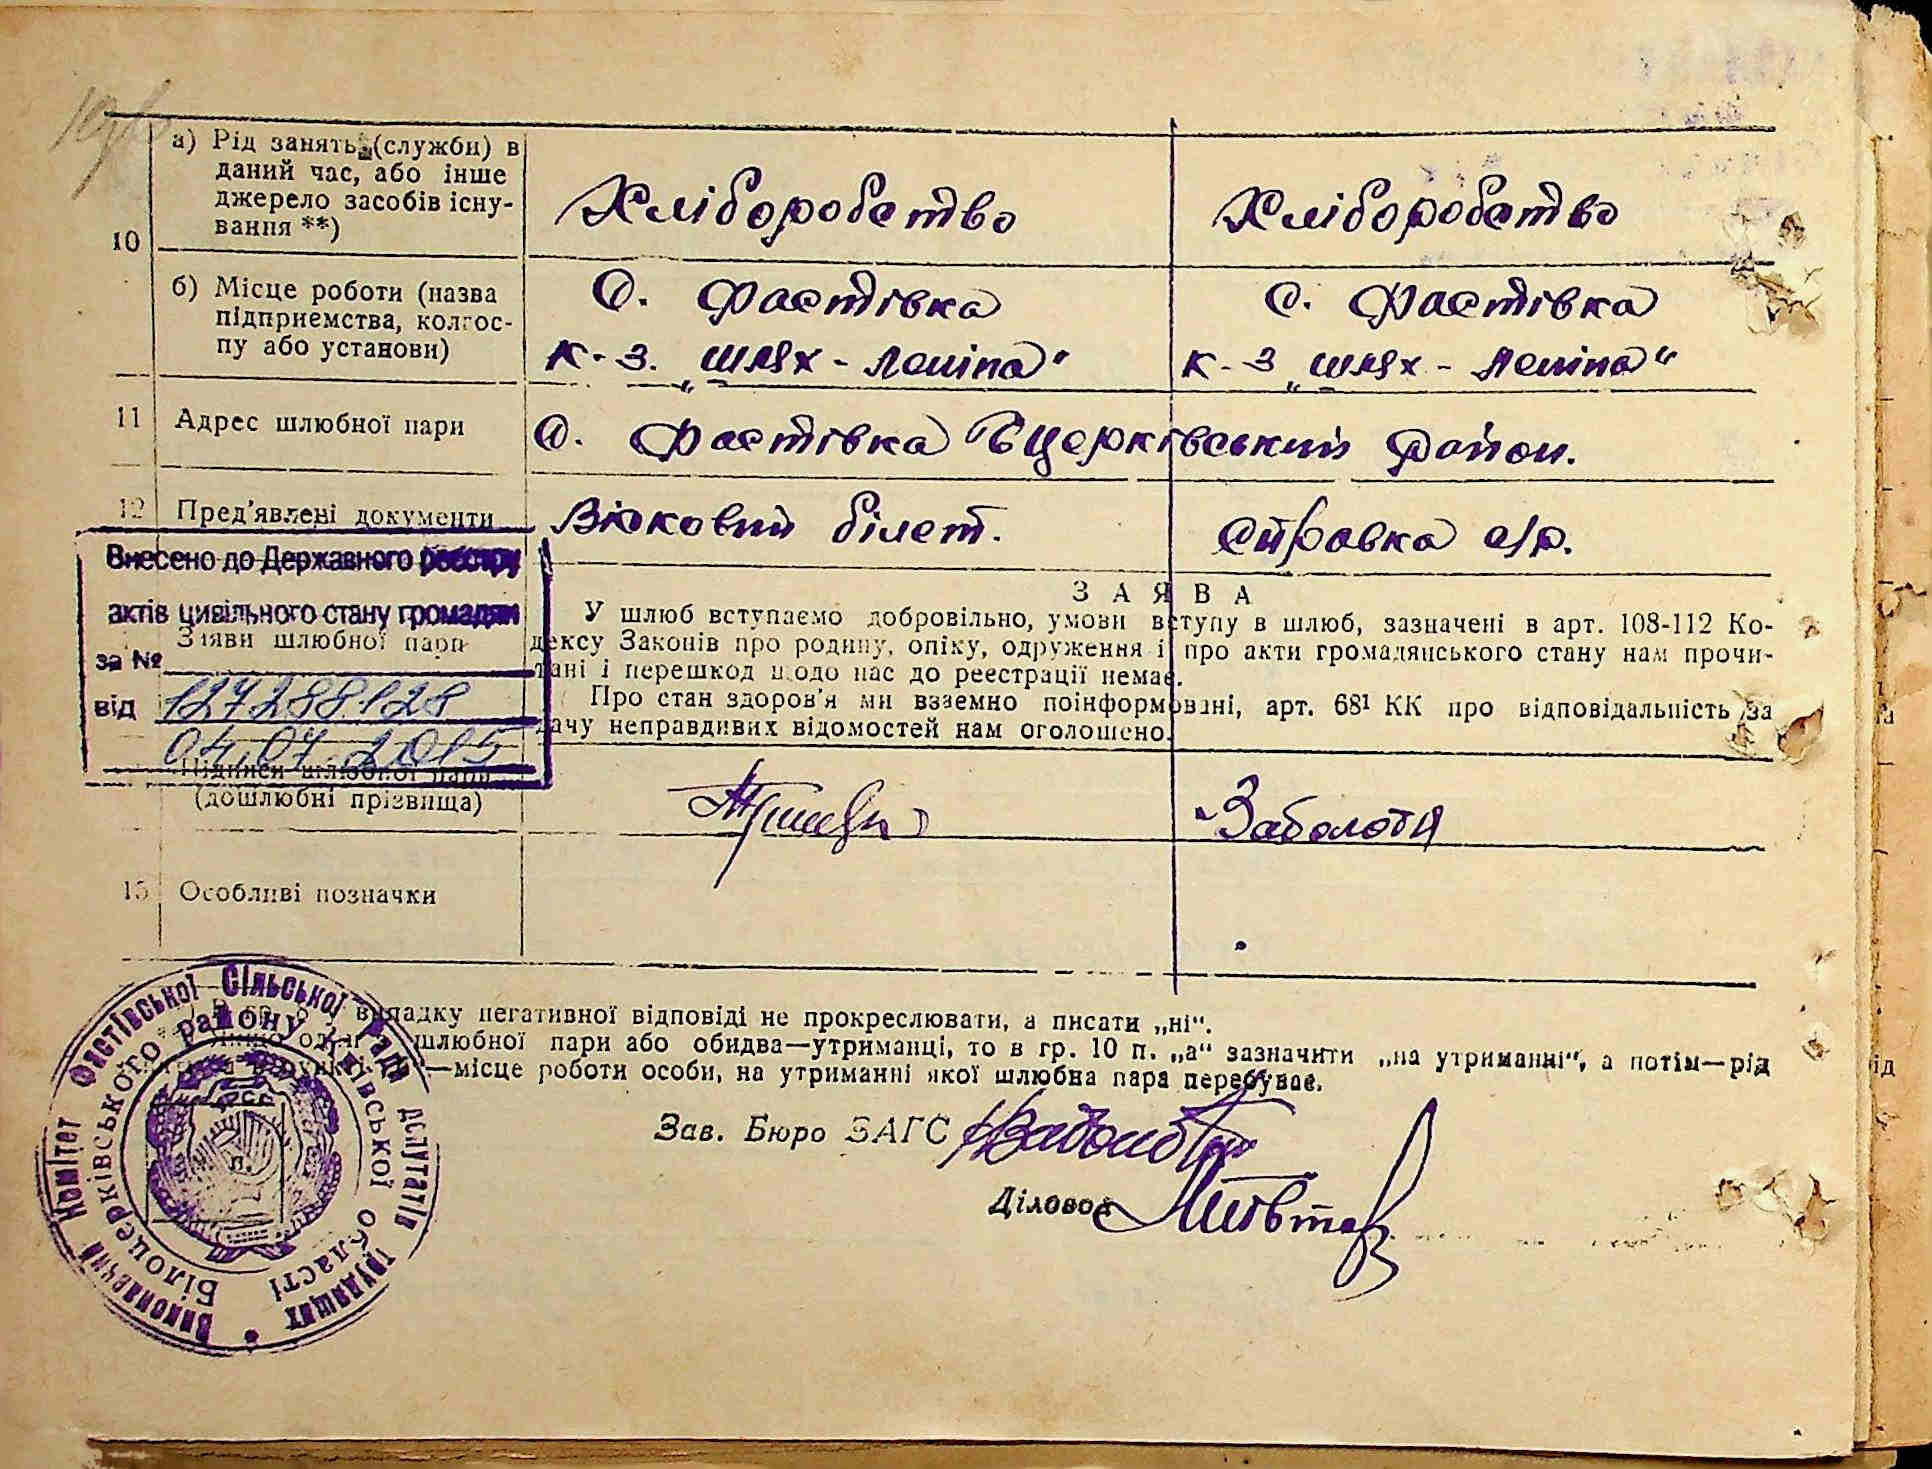 10
а) Рід занять (служби) в
даний час, або інше
джерело засобів існу-
вання **)
Хліборобство
Хліборобство
б) Місце роботи (назва
підприемства, колгос-
пу або установи)
С. Фастівка
к-з. „шлях-Леніна"
с. Фастівка
к-з „шлях-Леніна"
11 Адрес шлюбної пари
С. Фастівка Бцерківський район.
12 Пред'явлені документи
Війсковий білет.
справка с/р.
Внесено до Державного реєстру
актів цивільного стану громадян
за №
127288128
від
04.07.2015
Заяви шлюбної пари
ЗАЯВА
У шлюб вступаємо добровільно, умови вступу в шлюб, зазначені в арт. 108-112 Ко-
дексу Законів про родину, опіку, одруження і про акти громадянського стану нам прочи-
тані і перешкод щодо нас до реестрації немає.
Про стан здоров'я ми взаемно поінформовані, арт. 68¹ КК про відповідальність за
дачу неправдивих відомостей нам оголошено.
Підписи шлюбної пари
(дошлюбні прізвища)
Заболотя
15 Особливі позначки
випадку негативної відповіді не прокреслювати, а писати „ні".
шлюбної пари або обидва—утриманці, то в гр. 10 п. „а" зазначити „на утриманні", а потім—рід
—місце роботи особи, на утриманні якої шлюбна пара перебуває.
Зав. Бюро ЗАГС
Діловод
Виконавчий Комітет Фастівської Сільської Ради депутатів трудящих
Білоцерківського району Київської області